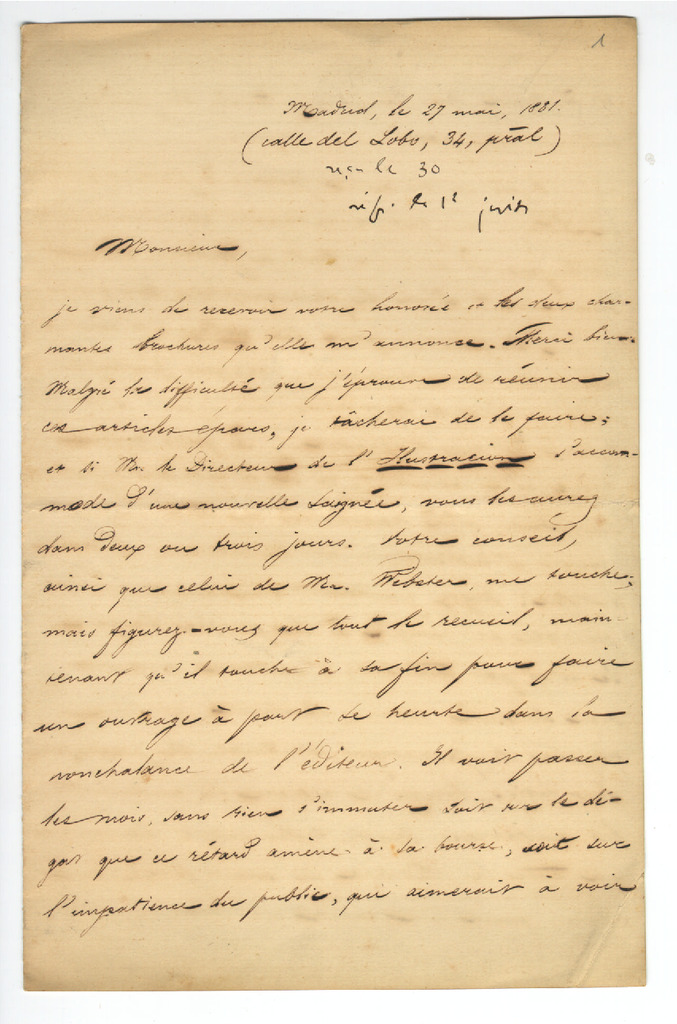 1
Madrid, le 27 mai, 1881.
(calle del Lobo, 34, pral)
reçu le 30
rép. le 1r juin
Monsieur,
je viens de recevoir votre honorée et les deux char-
mantes brochures qu'elle m'annonce. Merci bien.
Malgré la difficulté que j'éprouve de réunir
ces articles épars, je tâcherai de le faire;
et si Mr. le Directeur de l'Ilustracion s'accom-
mode d'une nouvelle saignée, vous les aurez
dans deux ou trois jours. Votre conseil,
ainsi que celui de Mr. Webster, me touche;
mais figurez-vous que tout le recueil, main-
tenant qu'il touche à sa fin pour faire
un ouvrage à part se heurte dans la
nonchalance de l'éditeur. Il voit passer
les mois, sans rien s'immuter soit sur le dé-
gat que ce rétard amène à sa bourse, soit sur
l'impatience du public, qui aimerait à voir